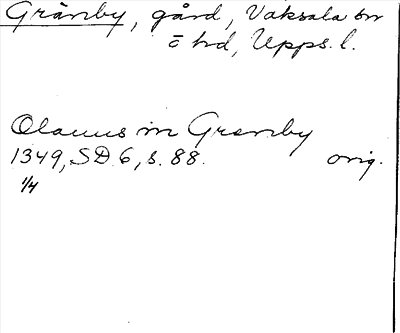 Gränby, gård, Vaksala sn
o hd, Upps. l.
Olauus in Grenby
1349, SD 6, s. 88. orig.
1/4